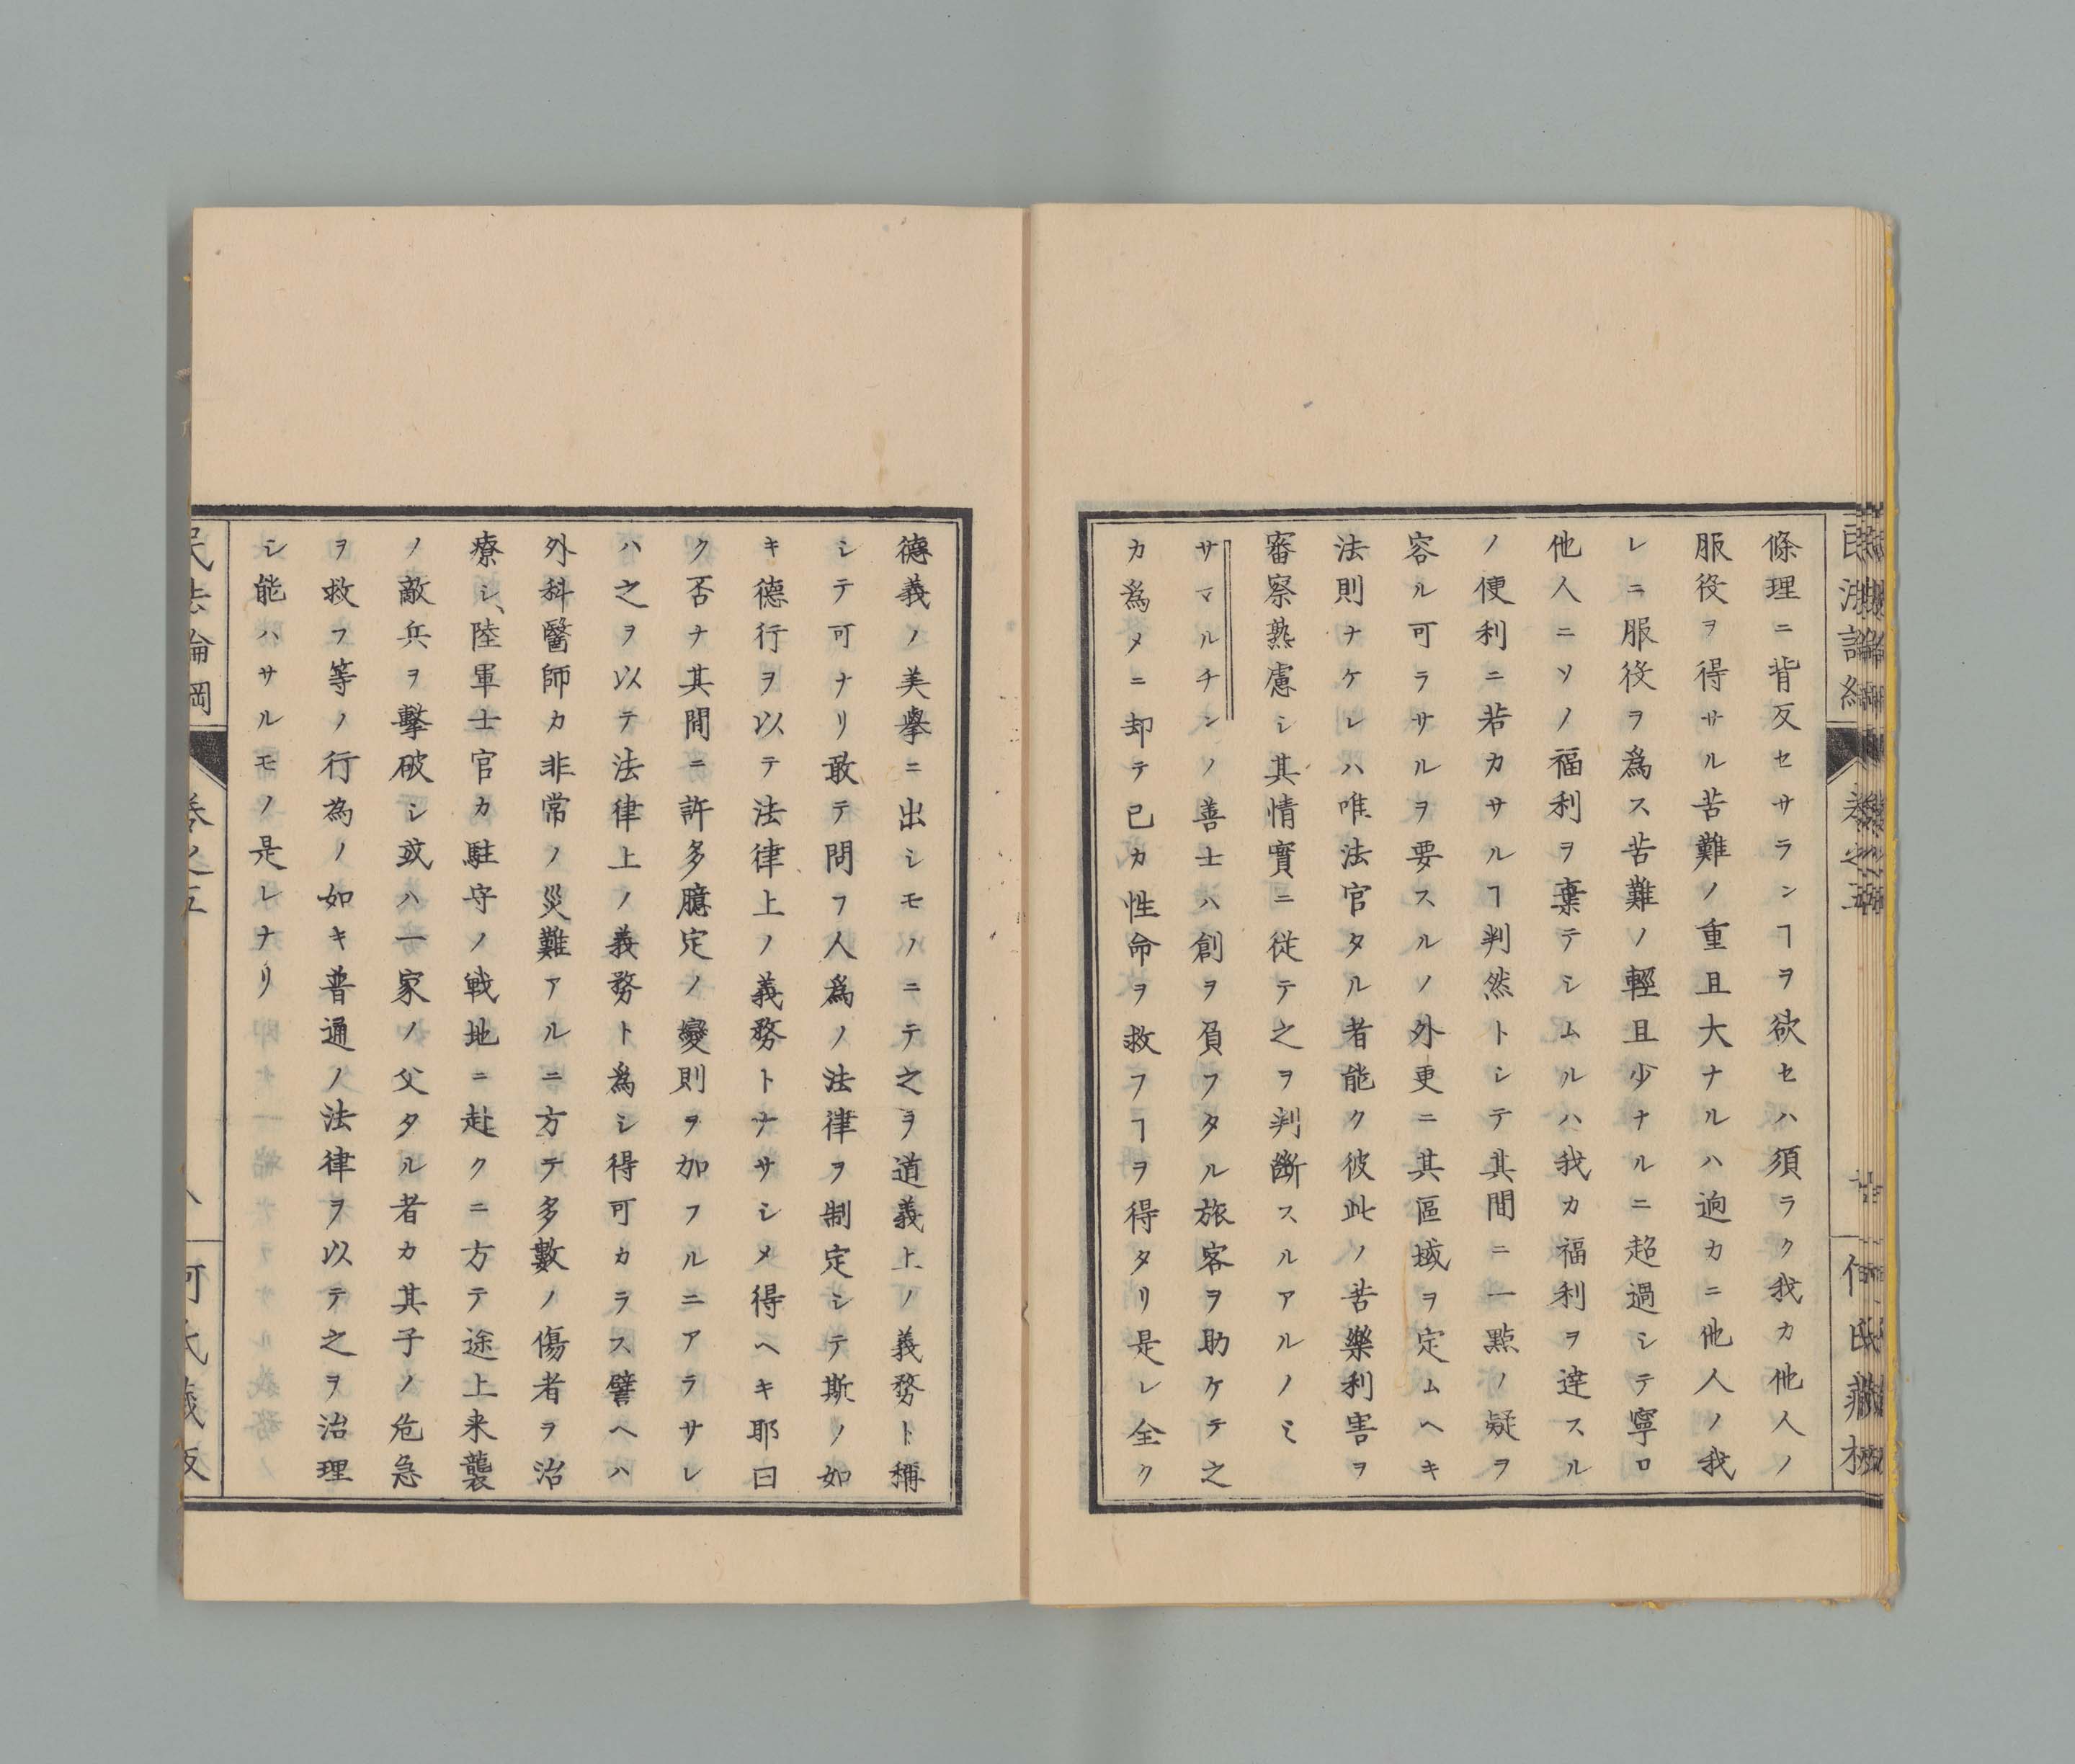 條理ニ背反セサランヿヲ欲セハ須ラク我カ他人ノ
服役ヲ得サル苦難ノ重且大ナルハ逈カニ他人ノ我
レニ服役ヲ爲ス苦難ノ輕且少ナルニ超過シテ寧ロ
他人ニソノ福利ヲ棄テシムルハ我カ福利ヲ達スル
ノ便利ニ若カサルヿ判然トシテ其間ニ一點ノ疑ヲ
容ル可ラサルヲ要スルノ外更ニ其區域ヲ定ムヘキ
法則ナケレハ唯法官タル者能ク彼此ノ苦樂利害ヲ
審察熟慮シ其情實ニ従テ之ヲ判斷スルアルノミ
サマルチンノ善士ハ創ヲ負フタル旅客ヲ助ケテ之
カ爲メニ却テ已カ性命ヲ救フヿヲ得タリ是レ全ク
德義ノ美擧ニ出シモノニテ之ヲ道義上ノ義務ト稱
シテ可ナリ敢テ問フ人爲ノ法律ヲ制定シテ斯ノ如
キ德行ヲ以テ法律上ノ義務トナサシメ得ヘキ耶曰
ク否ナ其間ニ許多臆定ノ變則ヲ加フルニアラサレ
ハ之ヲ以テ法律上ノ義務ト為シ得可カラス譬ヘハ
外科醫師カ非常ノ災難アルニ方テ多數ノ傷者ヲ治
療シ、陸軍士官カ駐守ノ戦地ニ赴クニ方テ途上来襲
ノ敵兵ヲ擊破シ或ハ一家ノ父タル者カ其子ノ危急
ヲ救フ等ノ行為ノ如キ普通ノ法律ヲ以テ之ヲ治理
シ能ハサルモノ是レナリ
民法論綱
卷之五
何氏藏板